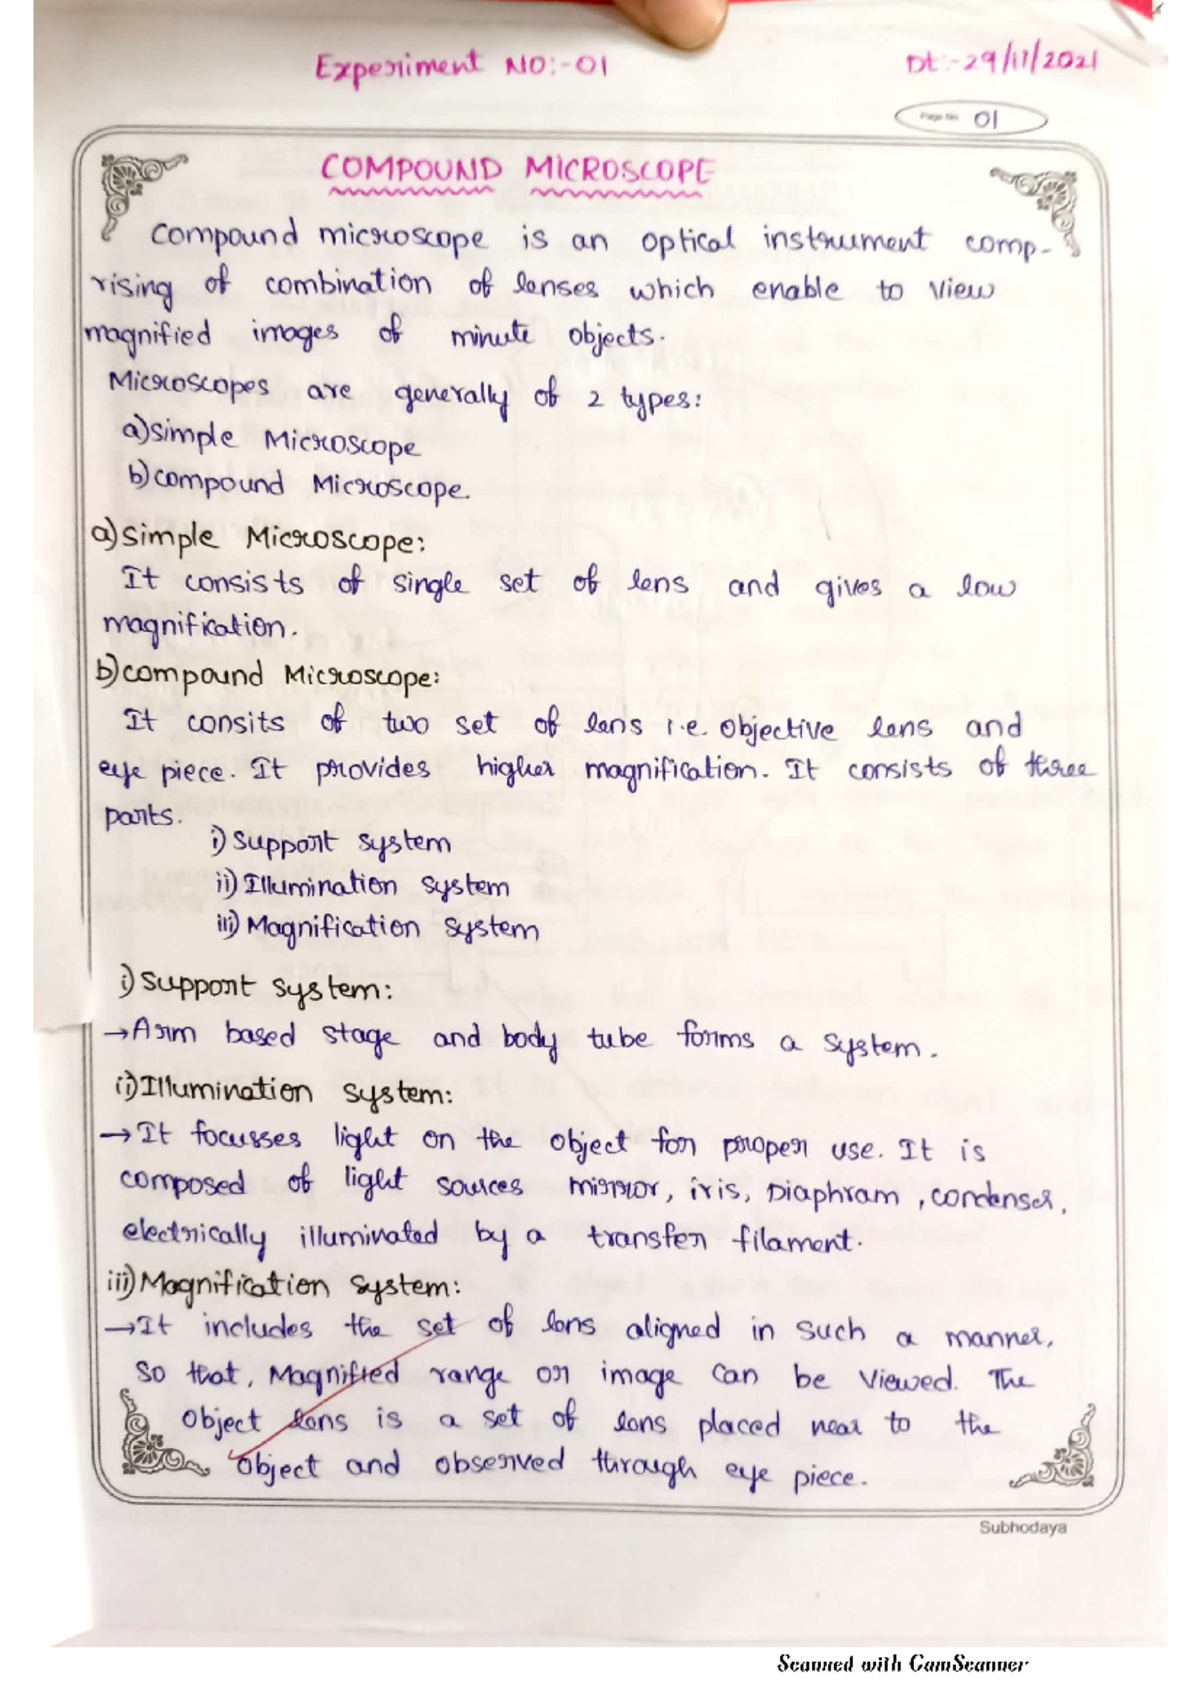 Experiment NO:-01
Dt:-29/11/2021
Page No. 01
COMPOUND MICROSCOPE
Compound microscope is an optical instrument comp-
rising of combination of lenses which enable to view
magnified images of minute objects.
Microscopes are generally of 2 types:
a)simple Microscope
b)compound Microscope.
a)simple Microscope:
It consists of single set of lens and gives a low
magnification.
b)compound Microscope:
It consits of two set of lens i.e. objective lens and
eye piece. It provides higher magnification. It consists of three
parts.
i) Support system
ii) Illumination system
iii) Magnification system
i) Support system:
→Arm based stage and body tube forms a system.
ii)Illumination system:
→It focusses light on the object for proper use. It is
composed of light sources mirror, iris, Diaphram, condenser,
electrically illuminated by a transfer filament.
iii) Magnification system:
→It includes the set of lens aligned in such a manner,
So that, Magnified range or image can be viewed. The
Object lens is a set of lens placed near to the
Object and observed through eye piece.
Subhodaya
Scanned with CamScanner